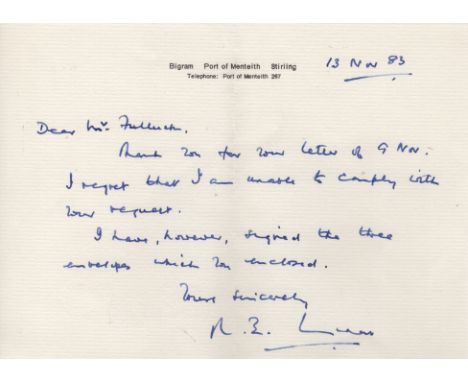 Bigram Port of Menteith Stirling
Telephone: Port of Menteith 267
13 Nov 83
Dear Mr
Thank you for your letter of 9 Nov.
I regret that I am unable to comply with
your request.
I have, however, signed the three
envelopes which you enclosed.
Yours sincerely
R. E.